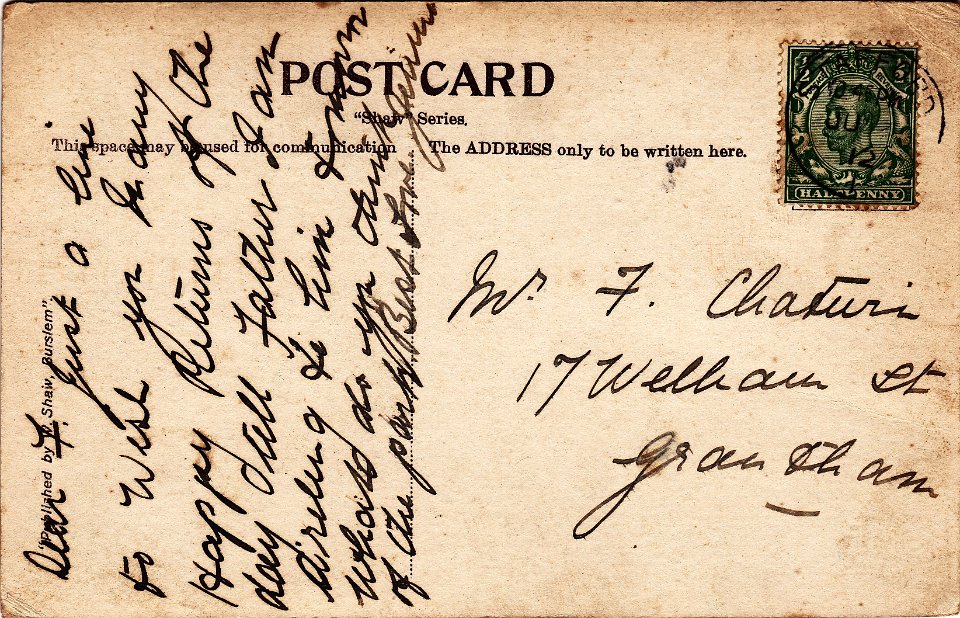 POST CARD
"Shaw" Series.
This space may be used for communication
The ADDRESS only to be written here.
"Published by W. Shaw, Burslem"
Dear F. Just a line
to Wish you Many
Happy Returns of the
day tell Father I am
to him
whats do you think
of the party Best Love
Mr F. Chaturin
17 Welham St
Grantham
HALFPENNY
JU
12